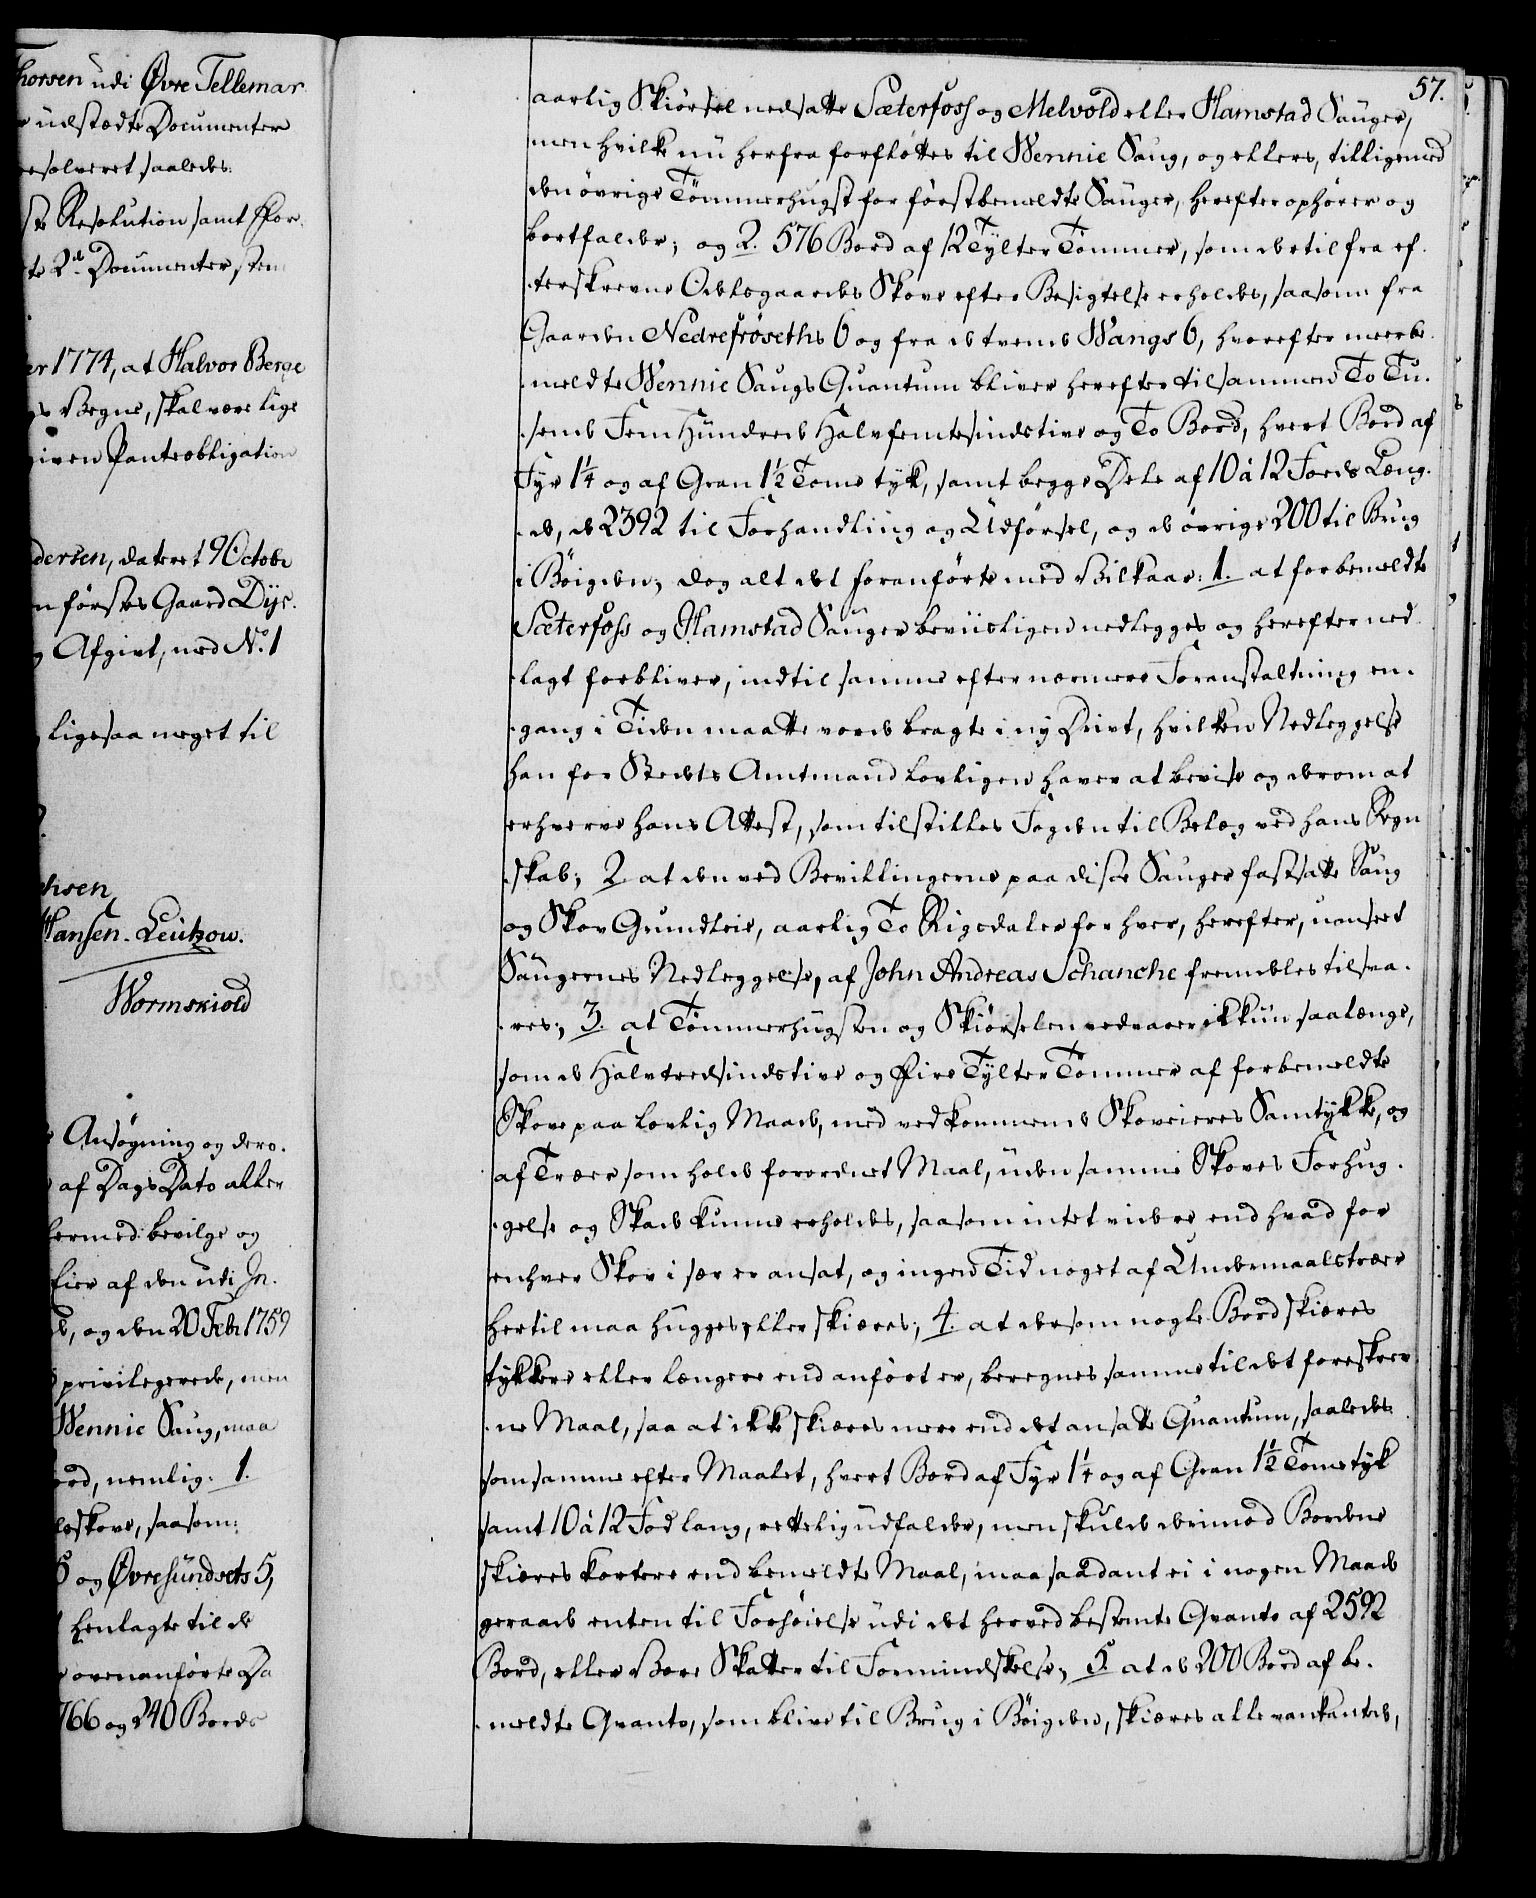 horsen udi Øvre Tellemar
udstædte Documenter
esolveret saaledes:
ste Resolution samt For.
te 2de Documenter stem
er 1774, at Halvor Berge
Vegne, skal være lige
given Panteobligation
dersen, dateret 9 Octobr
n førstes Gaard Dijs.
Afgivt, med No. 1
ligesaa meget til
hsen
Hansen. Leützow.
Wormskiold
Ansøgning og dero.
af Dags Dato aller
hermed bevilge og
Eier af den udi In.
og den 20 Febr 1759
privilegerede, men
Wennie Saug, maa
ord, nemlig: 1.
skove, saasom:
6 og Øvresundsets 5,
henlagte til de
ovenanførte Da
766 og 240 Bords
57.
aarlig Skiørsel nedsatte Sæterfoss og Melvold eller Hamstad Sauger,
men hvilke nu herfra forfløttes til Wennie Saug, og ellers, tilligemed
den øvrige Tømmerhugst for førstbemeldte Sauger, herefter ophører og
bortfalder; og 2. 576 Bord af 12 Tylter Tømmer, som dertil fra ef.
.terskrevne Odelsgaardes Skove efter Besigtelse erholdes, saasom fra
Gaarden Nedrefrøseths 6 og fra de tvende Wangs 6, hvorefter meerbe.
.meldte Wennie Saugs Quantum bliver herefter tilsammen To Tu.
.sende Fem Hundrede Halvfemtesindstive og To Bord, hvert Bord af
Fyr 1 1/4 og af Gran 1 1/2 Tomme tyk, samt begge Dele af 10 à 12 Foeds Læng.
.de, de 2392 til Forhandling og Udførsel, og de øvrige 200 til Brug
i Bøigden; dog alt det foranførte med Vilkaar: 1. at forbemeldte
Sæterfoss og Hamstad Sauger beviisligen nedlegges og herefter ned
.lagt forbliver, indtil samme efter nærmere Foranstaltning en.
.gang i Tiden maatte vorde bragte i ny Drivt, hvilken Nedleggelse
han for Stedets Amtmand lovligen haver at bevise og derom at
erhverve hans Attest, som tilstilles Fogden til Belæg ved hans Regn
.skab; 2. at den ved Bevillingerne paa disse Sauger fastsatte Saug
og Skov Grundleie, aarlig To Rigsdaler for hver, herefter, uanseet
Saugernes Nedleggelse, af John Andreas Schanche fremdeles tilsva.
.res; 3. at Tømmerhugsten og Skiørselen vedvarer ikkun saalænge,
som de Halvtredsindstive og Fire Tylter Tømmer af forbemeldte
Skove paa lovlig Maade, med vedkommende Skoveieres Samtykke, og
af Træer som holde forordnet Maal, uden samme Skoves Forhug.
.gelse og Skade kunne erholdes, saasom intet videre end hvad for
enhver Skov i sær er ansat, og ingen Tid noget af Undermaalstræer
hertil maa hugges eller skiæres; 4. at dersom nogle Bord skiæres
tykkere eller længere end anført er, beregnes samme til det foreskrev
.ne Maal, saa at ikke skiæres mere end det ansatte Quantum, saaledes
som samme efter Maalet, hvert Bord af Fyr 1 1/4 og af Gran 1 1/2 Tomme tyk
samt 10 à 12 Fod lang, rettelig udfalder, men skulde derimod Bordene
skiæres kortere end bemeldte Maal, maa saadant ei i nogen Maade
geraade enten til Forhøielse udi det herved bestemte Qvanto af 2592
Bord, eller Vore Skatter til Formindskelse; 5. at de 200 Bord af be.
.meldte Qvanto, som blive til Brug i Bøigden, skiæres alle vankantede,